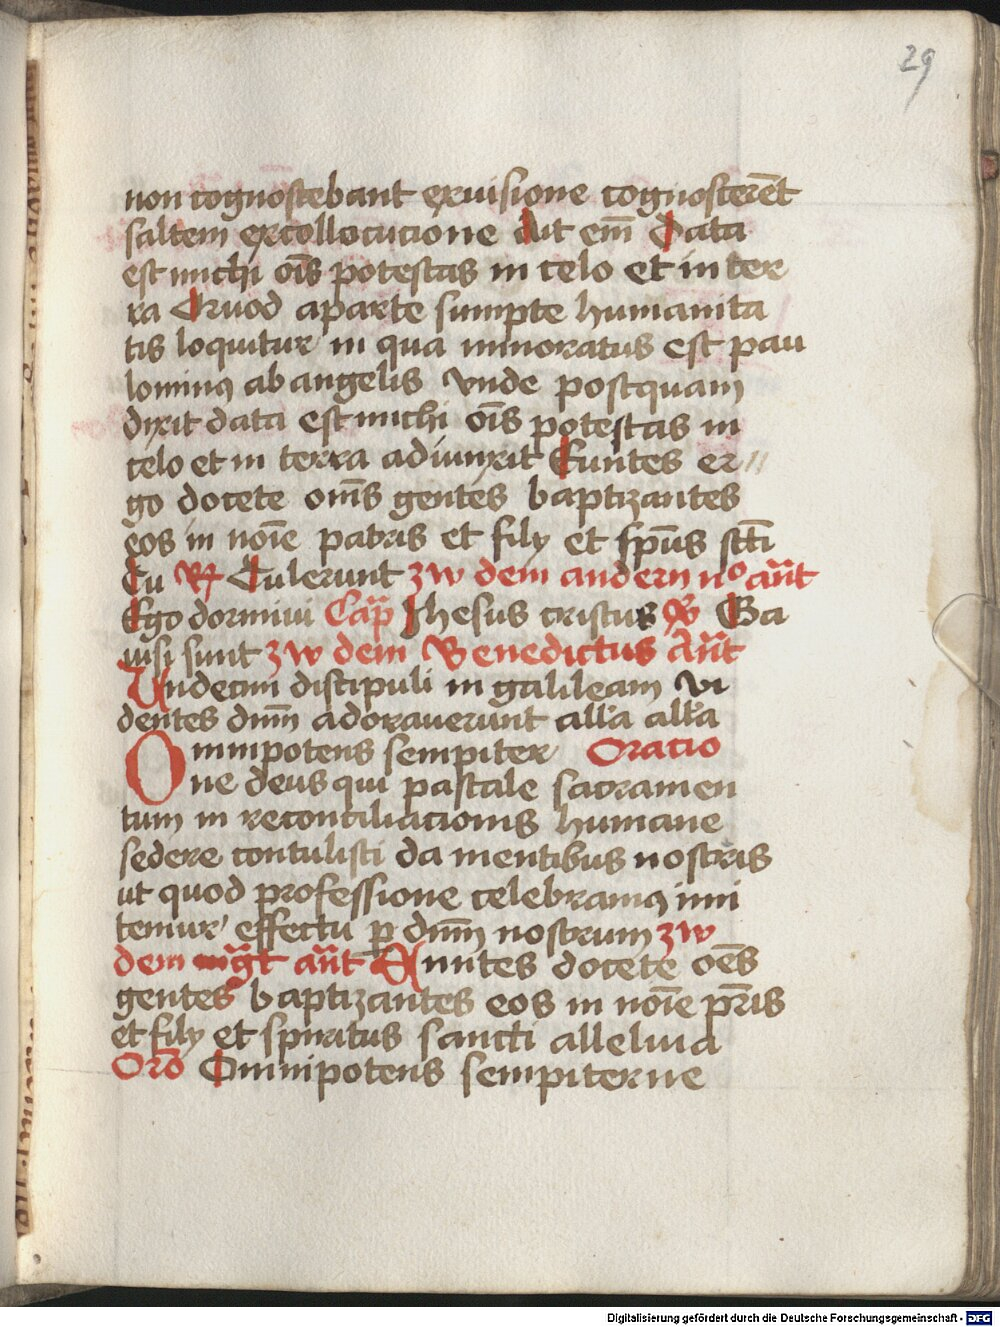 29
non cognoscebant ex visione cognoscerēt
saltem ex collocucione Ait em̄ Data
est michi oīs potestas in celo et in ter
ra Quod a parte sumpte humanita
tis loquitur in qua minoratus est pau
lominꝯ ab angelis Vnde postquam
dixit data est michi oīs potestas in
celo et in terra adiunxit Euntes er
go docete om̄s gentes baptizantes
eos in noīe patris et filÿ et sp̄us sc̄ti
Tu R̷ Tulerunt zw dem andern n° an̄t
Ego dormiui Cap̄ Jhesus cristus V̷ Ga
uisi sunt zw dem Benedictus An̄t
Undecim discipuli in galileam vi
dentes dn̄m adorauerunt all̄a all̄a
Omnipotens sempiter Oracio
ne deus qui pascale sacramen
tum in reconciliacionis humane
federe contulisti da mentibus nostris
ut quod professione celebramꝯ imi
temur effectu ꝑ dn̄m nostrum zw
dem mg̃t an̄t Euntes docete oēs
gentes baptizantes eos in noīe pr̄is
et filÿ et spiratus sancti alleluia
Oro̅ Omnipotens sempiterne
Digitalisierung gefördert durch die Deutsche Forschungsgemeinschaft - DFG